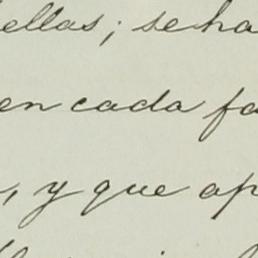 ellas; se ha
en cada fa
, y que ap